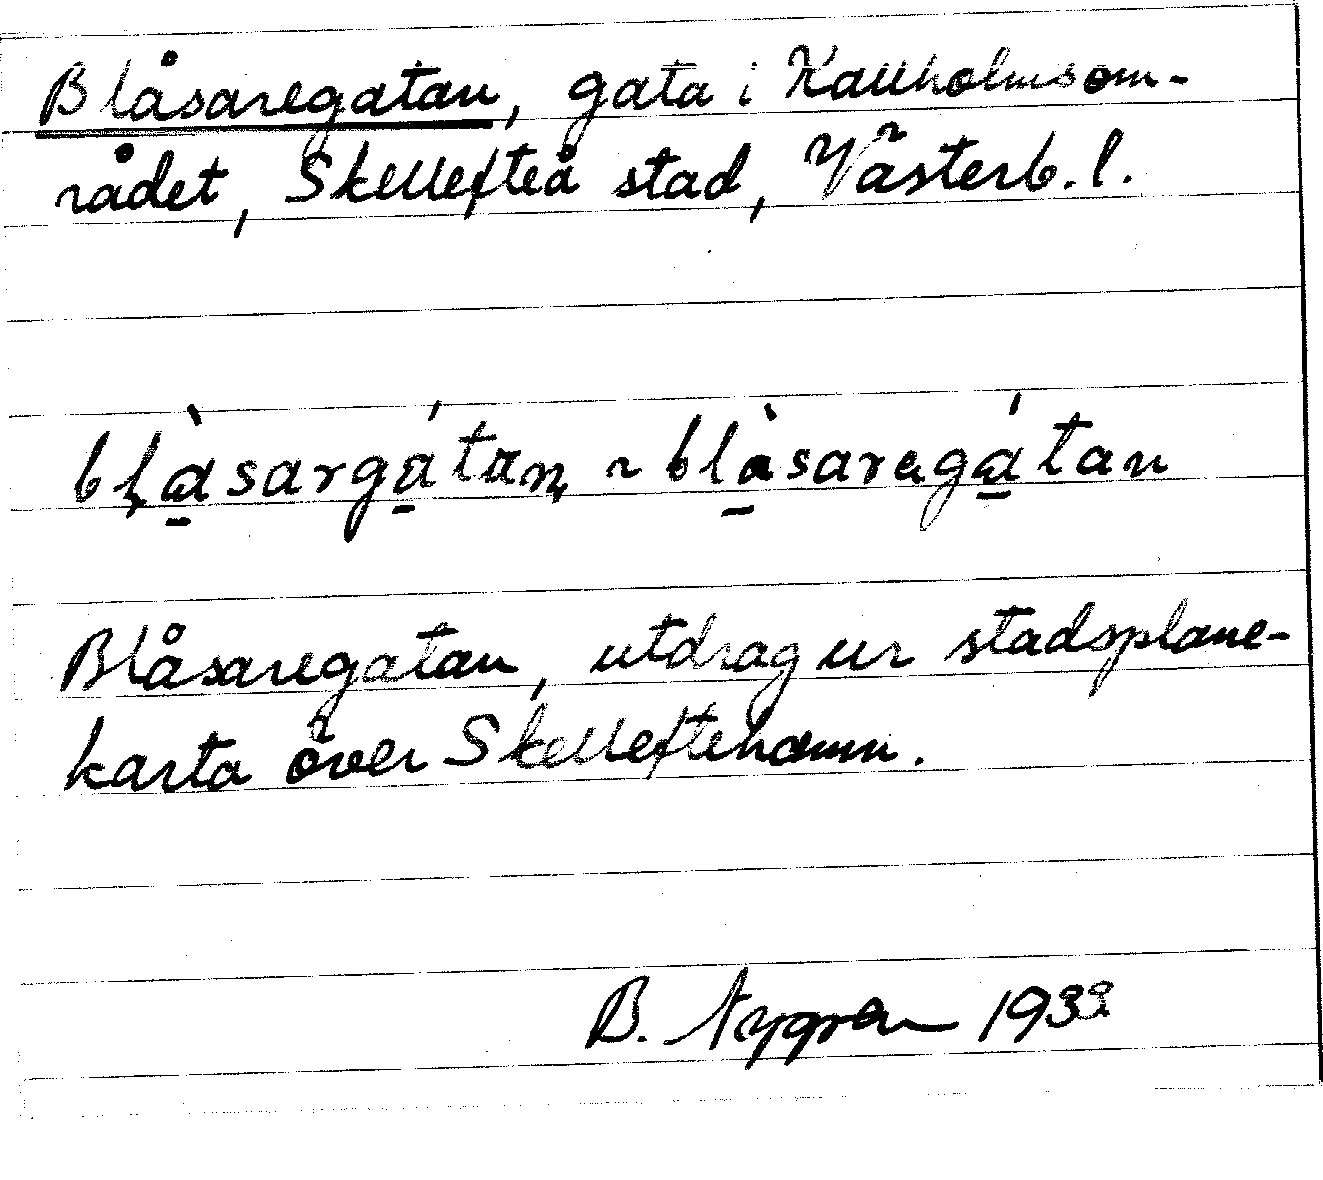 Blåsaregatan, gata i Kallholmsom-
rådet, Skellefteå stad, Västerb. l.
blàsargátan ~ blàsaregátan
Blåsaregatan, utdrag ur stadsplane-
karta över Skelleftehamn.
B. Nygren 1933